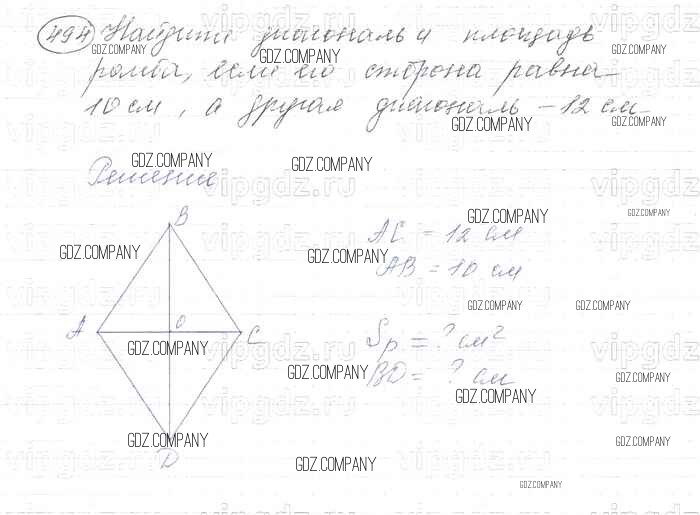 494 Найдите диагональ и площадь
GDZ.COMPANY GDZ.COMPANY GDZ.COMPANY
ромба, если его сторона равна
10 см, а другая диагональ – 12 см
GDZ.COMPANY GDZ.COMPANY
vipgdz.ru
GDZ.COMPANY GDZ.COMPANY
Решение
GDZ.COMPANY GDZ.COMPANY
B
AC = 12 см
GDZ.COMPANY GDZ.COMPANY
AB = 10 см
GDZ.COMPANY GDZ.COMPANY
A O C
Sр = ? см²
GDZ.COMPANY
BD = ? см
GDZ.COMPANY GDZ.COMPANY
GDZ.COMPANY
GDZ.COMPANY GDZ.COMPANY
D
GDZ.COMPANY
GDZ.COMPANY